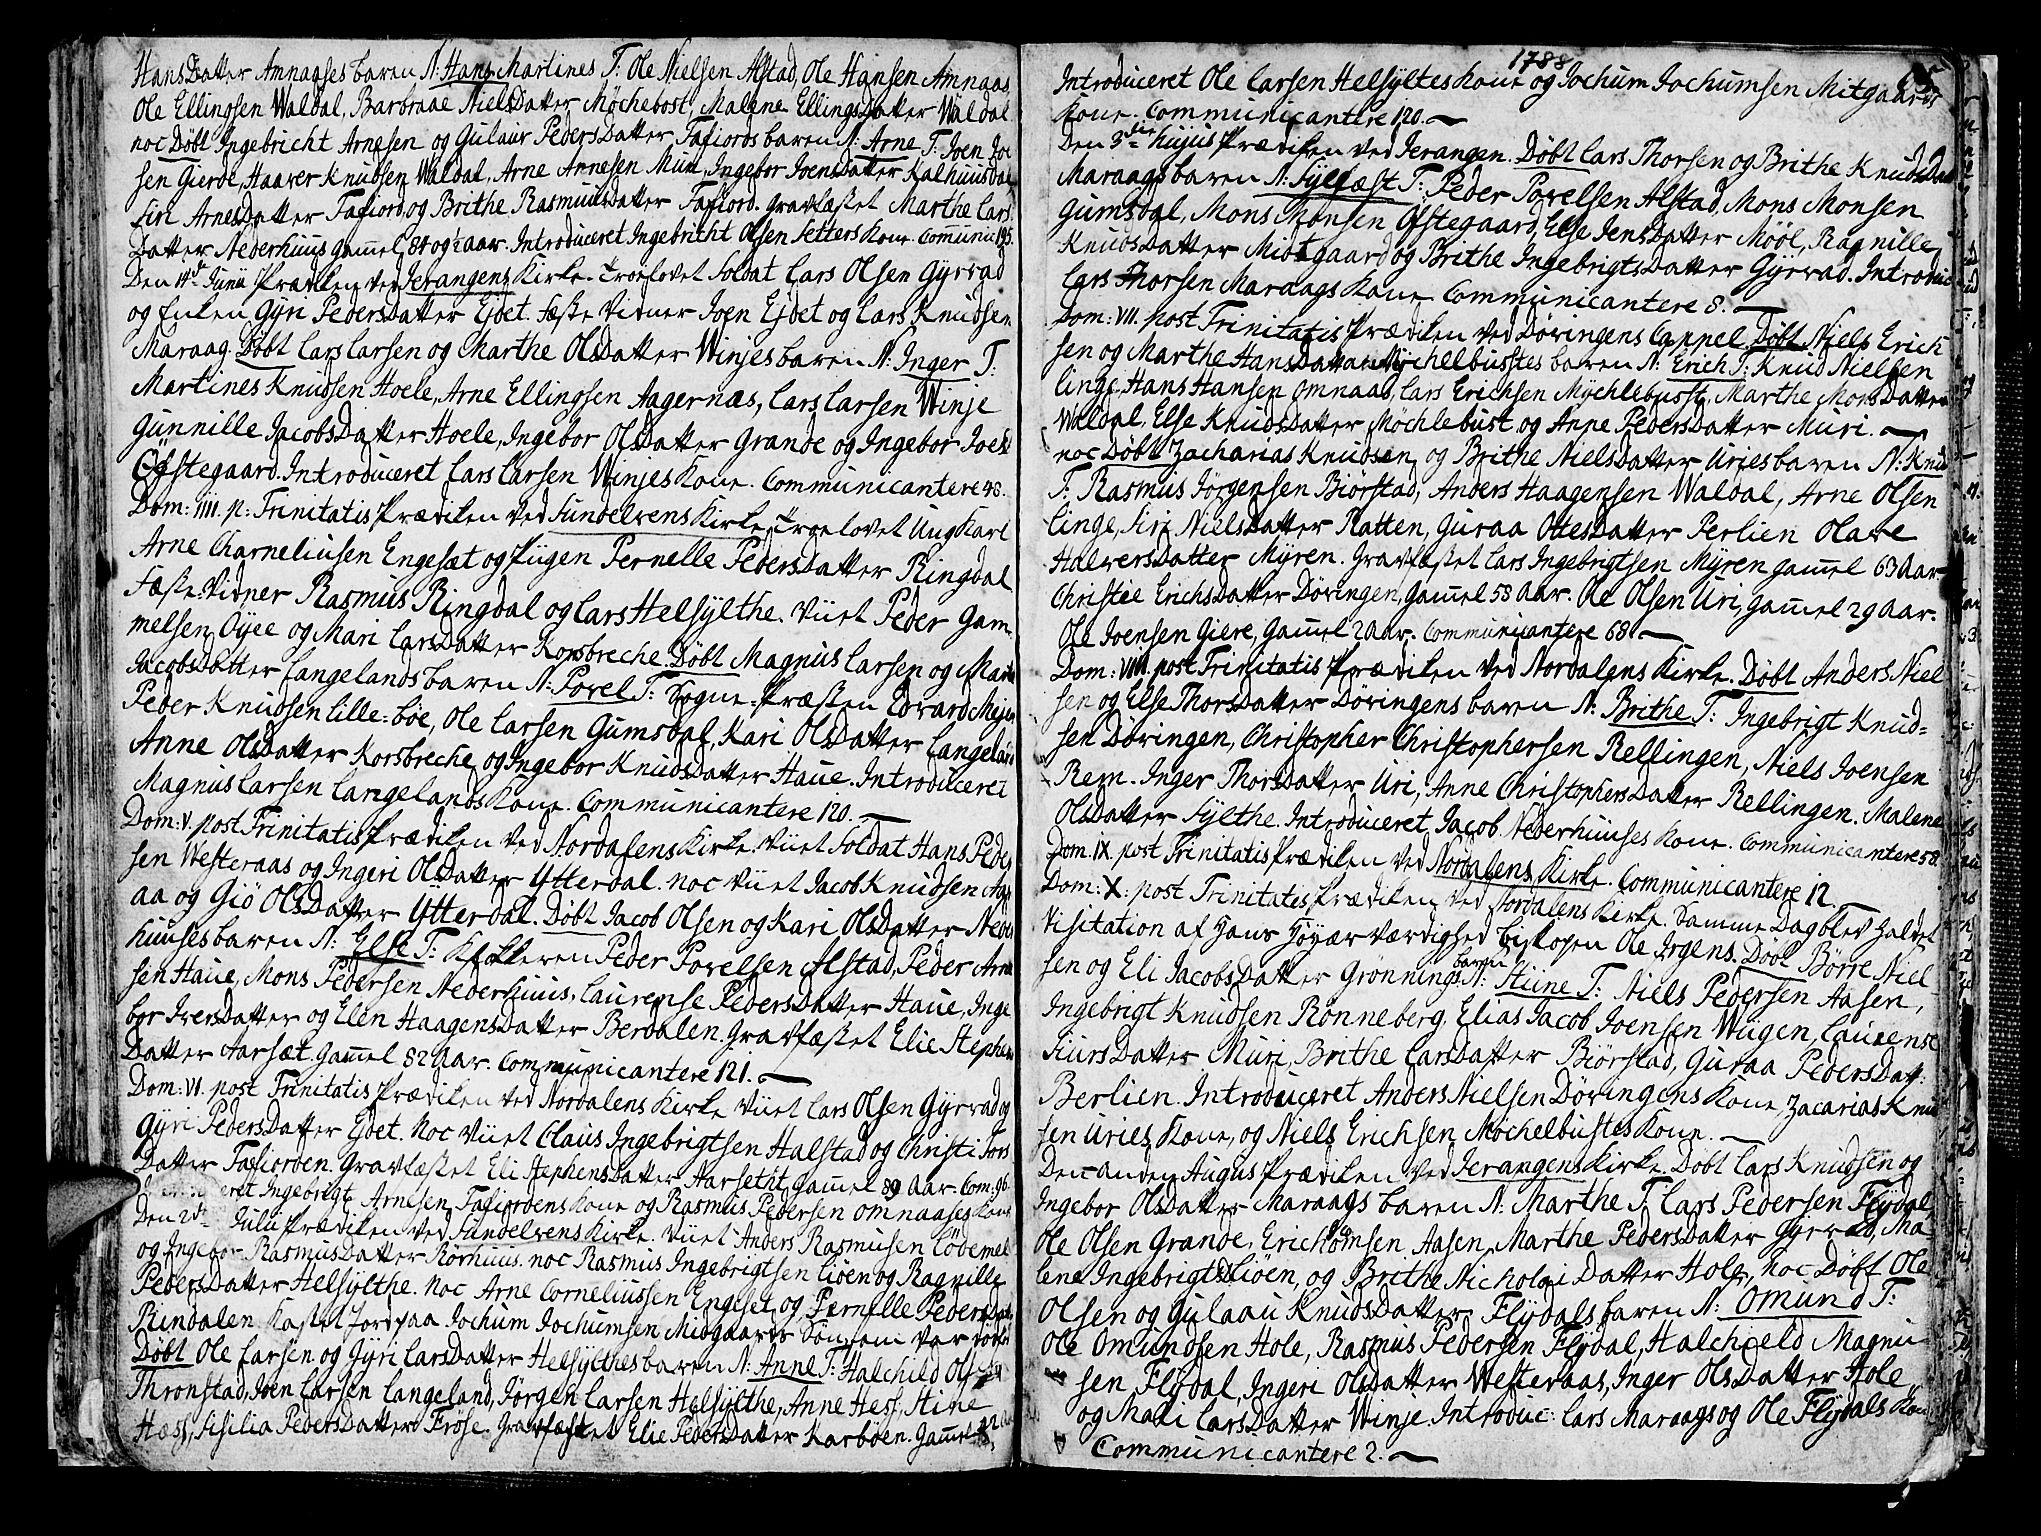 HansDatter Amnaases baren N: Hans Martines T: Ole Nielsen Alstad, Ole Hansen Amnaas
Ole Ellingsen Waldal, Barbraae NielsDatter Möchebost, Malene EllingsDatter Waldal
noc Döbt Ingebricht Arnesen og Gulaur PedersDatter Tafiords baren N: Arne T: Joen Joe
sen Gierde, Haaver Knudsen Waldal, Arne Arnesen Muri, Ingebor JoensDatter Kalhuusdal
Siri ArnesDatter Tafiord og Brithe RasmusDatter Tafiord. Gravfæstet Marthe Lars
Datter Nederhuus gamel 84 og ½ aar. Introduceret Ingebricht Olsen Setters Kone. Communic 195.
Den 14de Junii Prædiken ved Jerangens Kirke. Troelovet Soldat Lars Olsen Gyrrad
og Enken Gyri PedersDatter Ejdet. Fæste Vidner Joen Ejdet og Lars Knudsen
Maraag. Döbt Lars Larsen og Marthe OlsDatter Winjes baren N: Inger T:
Martines Knudsen Hoele, Arne Ellingsen Aagernæs, Lars Larsen Winje
Gunnille JacobsDatter Hoele, Ingebor OlsDatter Grande og Ingebor Joens
Ofstegaard. Introduceret Lars Larsen Winjes Kone. Communicantere 48.
Dom: IIII. p: Trinitatis Prædiken ved Sundelvens Kirke, Troelovet Ung Karl
Arne Charneliusen Engesæt og Pigen Pernelle PedersDatter Ringdal
Fæste: Vidner Rasmus Ringdal og Lars Helsylthe. Viiet Peder Gam-
melsen Öyee og Mari LarsDatter Korsbreche. Döbt Magnus Larsen og Marte
JacobsDatter Langelands baren N: Povel T: Sogne-Præsten Edvard Mejer
Peder Knudsen Lille-böe, Ole Larsen Gumsdal, Kari OlsDatter Langeland
Anne OlsDatter Korsbreche og Ingebor KnudsDatter Haue. Introduceret
Magnus Larsen Langelands Kone. Communicantere 120.
Dom: V. post Trinitatis Prædiken ved Nordalens Kirke. Viiet Soldat Hans Peder
sen Westeraas og Ingeri OlsDatter Ytterdal. noc Viiet Jacob Knudsen
aa og Giö OlsDatter Ytterdal. Döbt Jacob Olsen og Kari OlsDatter Neder
huuses baren N: Else T: Klokkeren Peder Povelsen Alstad, Peder Arne
sen Haue, Mons Pedersen Nederhuus, Laurense PedersDatter Haue, Inge
bor IversDatter og Elen HaagensDatter Berdalen. Gravfæstet Elie Stephens
Datter Aarsæt. Gamel 82 aar. Communicantere 121.
Dom: VI. post Trinitatis Prædiken ved Nordalens Kirke Viiet Lars Olsen Gyrrad og
Gyri PedersDatter Ejdet. Noc Viiet Claus Ingebrigtsen Halstad og Christi Tors
Datter Tafiorden. Gravfæstet Eli StephensDatter Aarsetht gamel 89 aar. Com: 96
Ingebrigt Arnesen Tafiordens Kone og Rasmus Pedersen Omnaases Kone
Den 2de Julii Prædiken ved Sundelvens Kirke. Viiet Anders Rasmusen Lödemel
og Ingebor RasmusDatter Rorhuus. noc Rasmus Ingebrigtsen Liöen og Ragnille
PedersDatter Helsylthe. Noc Arne Corneliussen Engeset og Pernelle PedersDatter
Rindalen Kastet Jord paa Jochum Jochumsen Midgaards Sön som var död
Döbt Ole Larsen og Gyri LarsDatter Helsylthes baren N: Anne T: Halchild Olsen
Thronstad, Joen Larsen Langeland, Jörgen Larsen Helsylthe, Anne Hess, Stine
Hess, Sisilia PedersDatter Frose. Gravfæstet Elie PedersDatter Karböen. Gamel
1788
Introduceret Ole Larsen Helsyltes Kone og Jochum Jochumsen Mitgaards
Kone. Communicantere 120.
Den 3die hujus Prædiken ved Jerangen. Döbt Lars Thorsen og Brithe KnudsDatter
Maraags baren N: Syltæst T: Peder Povelsen Alstad, Mons Monsen
Gumsdal, Mons Monsen Ofstegaard, Else JensDatter Mööl, Ragnille
KnudsDatter Midtgaard og Brithe IngebrigtsDatter Gyrrad. Introduc
Lars Thorsen Maraags Kone Communicantere 8.
Dom: VII. post Trinitatis Prædiken ved Döringens Cappel Döbt Niels Erich
sen og Marthe HansDatter Mychelbustes baren N: Erich T: Knud Nielsen
Linge, Hans Hansen Omnaas, Lars Erichsen Mychlebust, Marthe MonsDatter
Waldal, Else KnudsDatter Möchlebust og Anne PedersDatter Muri.
noc Döbt Zacharias Knudsen og Brithe NielsDatter Uries baren N: Knud
T: Rasmus Jörgensen Biörstad, Anders Haagensen Waldal, Arne Olsen
Linge, Siri NielsDatter Ratten, Guraa OttesDatter Perlien Olave
HalversDatter Myren. Gravfæstet Lars Ingebrigtsen Myren gamel 63 aar
Christie ErichsDatter Döringen, Gamel 58 aar. Ole Olsen Uri, Gamel 29 aar.
Ole Joensen Giere, Gamel 2 aar. Communicantere 68.
Dom: VIII. post Trinitatis Prædiken ved Nordalens Kirke. Döbt Anders Niel
sen og Else ThorsDatter Döringens baren N: Brithe T: Ingebrigt Knud-
sen Döringen, Christopher Christophersen Rellingen, Niels Joensen
Rem. Inger ThorsDatter Uri, Anne ChristophersDatter Rellingen. Malene
OlsDatter Sylthe. Introduceret Jacob Nederhuuses Kone. Communicantere 58.
Dom. IX. post Trinitatis Prædiken ved Nordalens Kirke. Communicantere 12.
Dom: X. post Trinitatis Prædiken ved Nordalens Kirke. Samme Dag blev Holdet
Visitation af Hans Höyær værdighed Biskopen Ole Irgens. Döbt Börre Niel
sen og Eli JacobsDatter Grönnings baren N: Stiine T: Niels Pedersen Aasen,
Ingebrigt Knudsen Rönneberg, Elias Jacob Joensen Wiigen, Laurense
SiursDatter Muri, Brithe LarsDatter Biörstad, Guraa PedersDatt:
Berlien. Introduceret Anders Nielsen Döringens Kone, Zacarias Knud
sen Uries Kone, og Niels Erichsen Möchelbustes Kone.
Den anden Augus Prædiken ved Jerangens Kirke. Döbt Lars Knudsen og
Ingebor OlsDatter Maraags baren N: Marthe T: Lars Pedersen Flydal,
Ole Olsen Grande, Erich Omsen Aasen, Marthe PedersDatter Gyrrad, Ma
lene Ingebrigts Liöen, og Brithe Nicholai Datter Hole, Noc Döbt Ole
Olsen og Gulaau KnudsDatter Flydals baren N: Omund T:
Ole Omundsen Hole, Rasmus Pedersen Flydal, Halchield Magnu
sen Flydal, Ingeri OlsDatter Westeraas, Inger OlsDatter Hole
og Mari LarsDatter Winje. Introduc: Lars Maraags og Ole Flydals Kon
Communicantere 2.